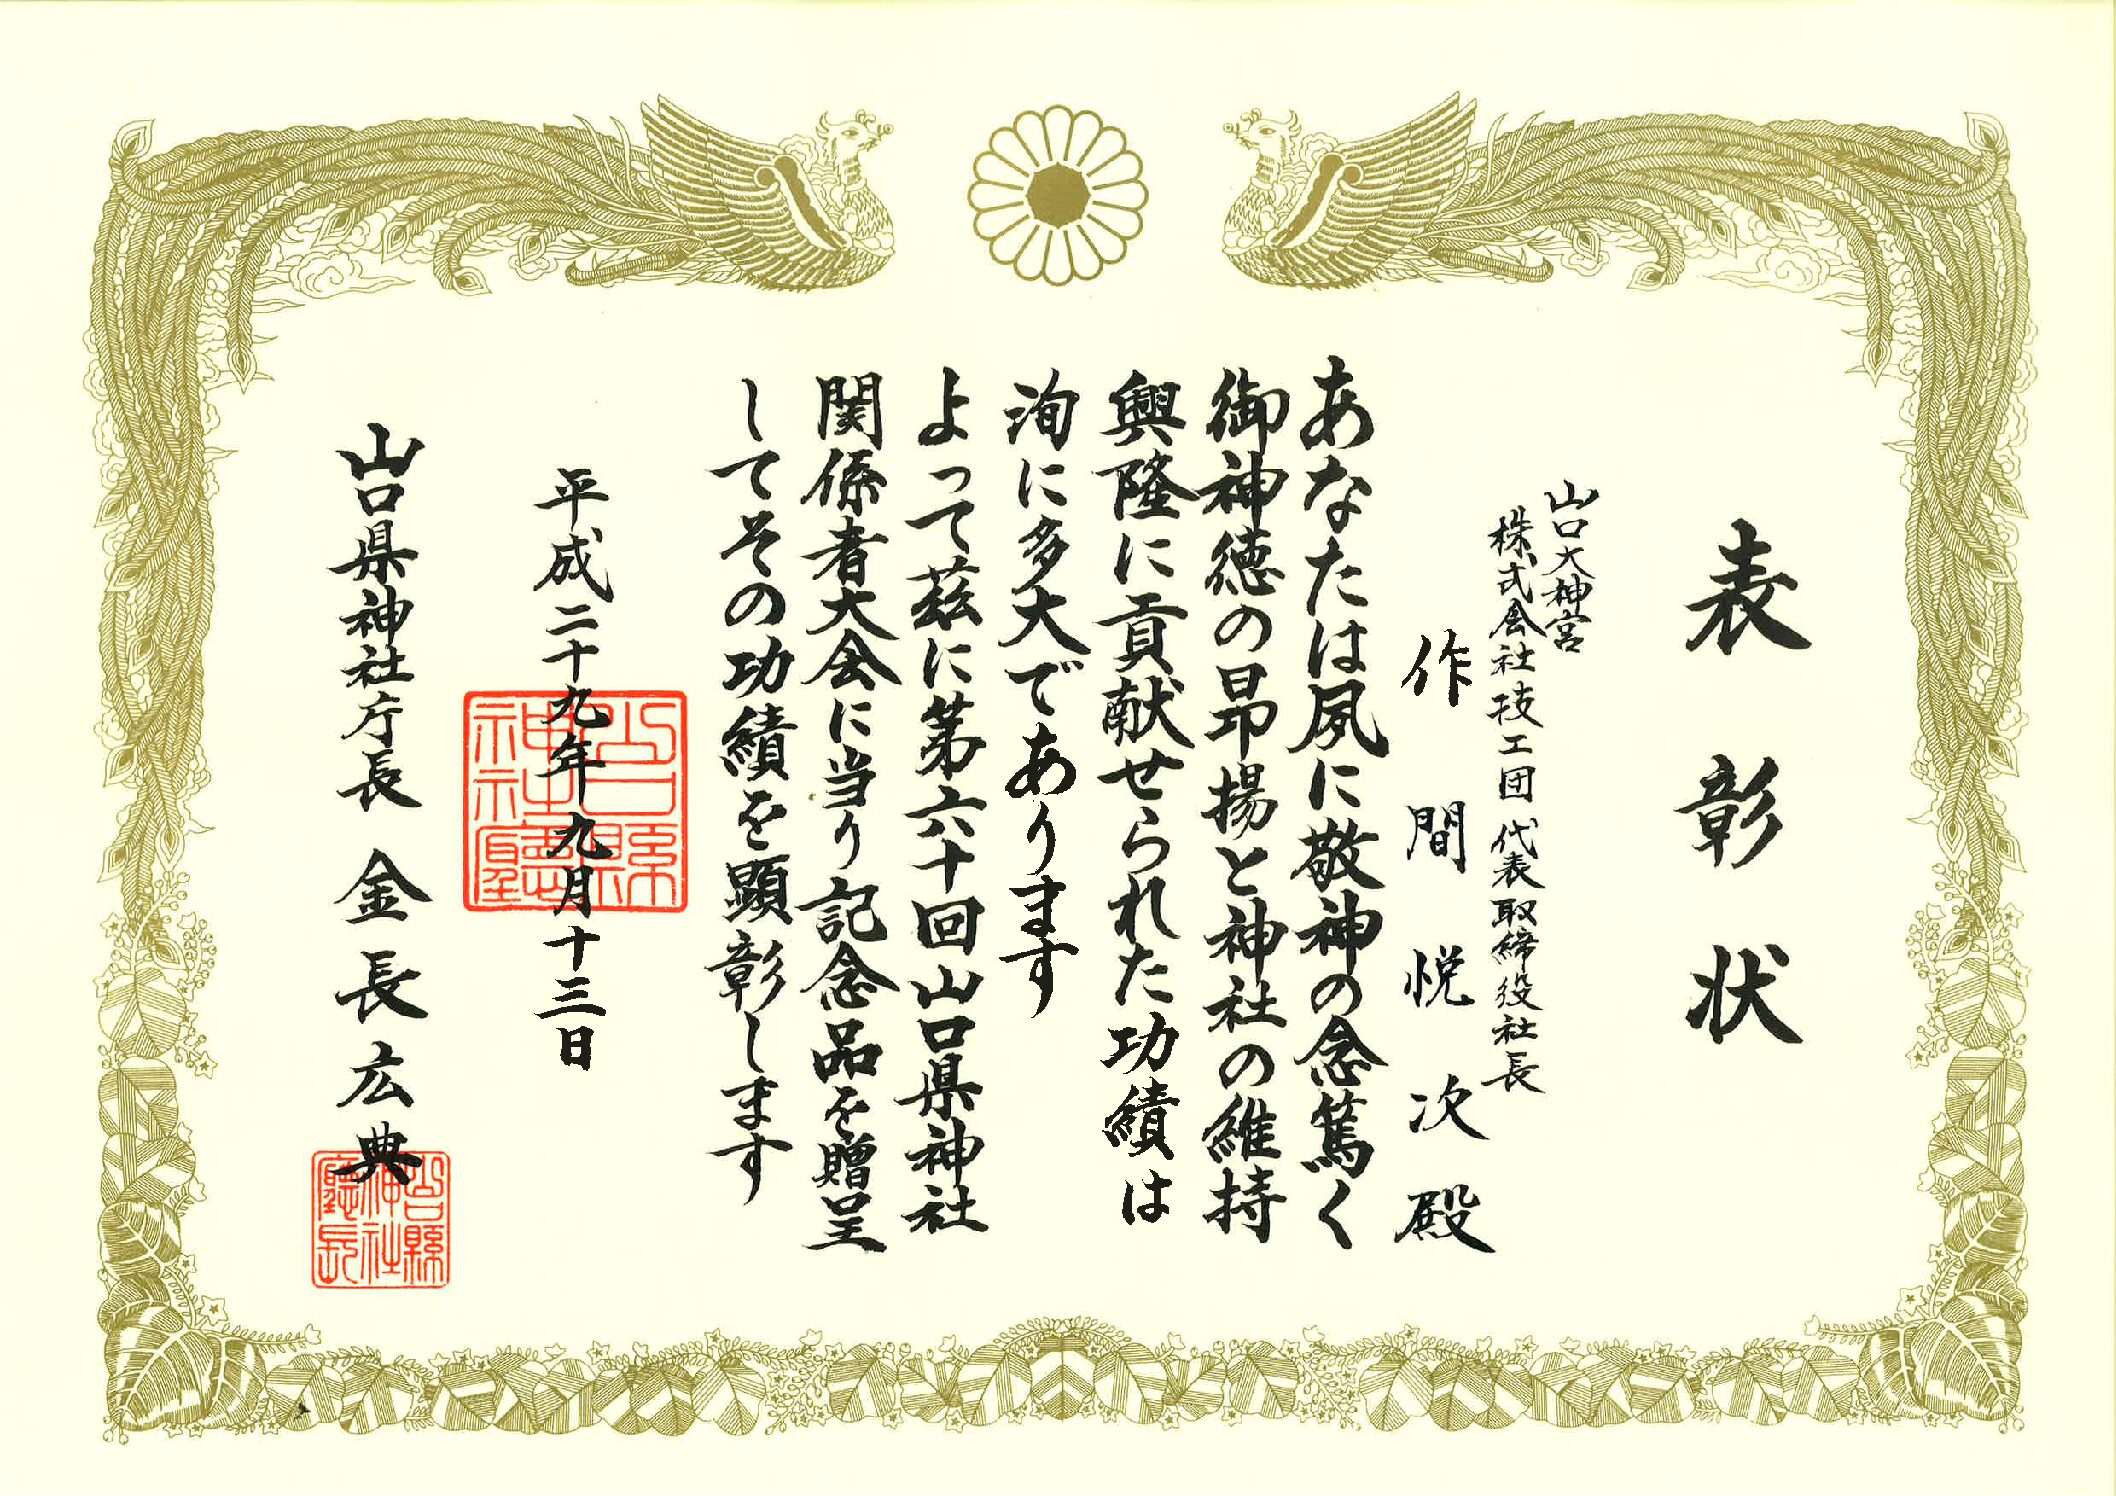 表彰状
山口大神宮
株式会社技工団 代表取締役社長
作間悦次殿
あなたは夙に敬神の念篤く
御神徳の昂揚と神社の維持
興隆に貢献せられた功績は
洵に多大であります
よって茲に第六十回山口県神社
関係者大会に当り記念品を贈呈
してその功績を顕彰します
平成二十九年九月十三日
山口県神社庁長 金長広典
山口縣
神社廳
山口縣
神社
廳長